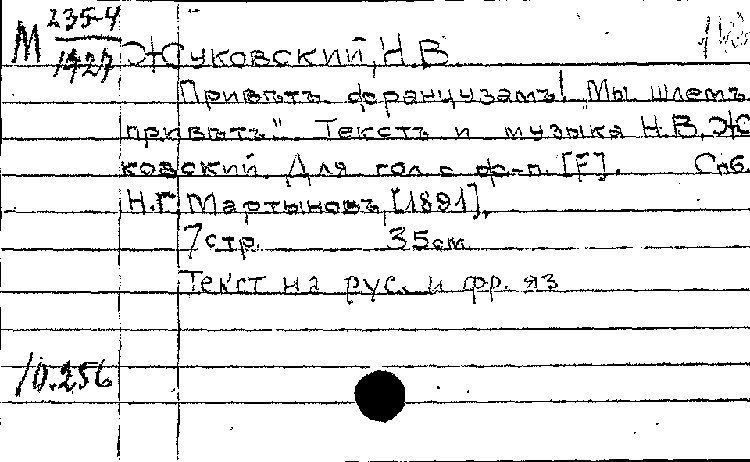 М 235-4
1427
Жуковский, Н.В.
Привѣтъ французамъ! "Мы шлемъ
привѣтъ". Текстъ и музыка Н.В. Жу
ковский. Для гол. с ф-п. [F]. Спб.
Н.Г. Мартыновъ, [1891],
7 стр. 35 см
Текст на рус. и фр. яз
10.256